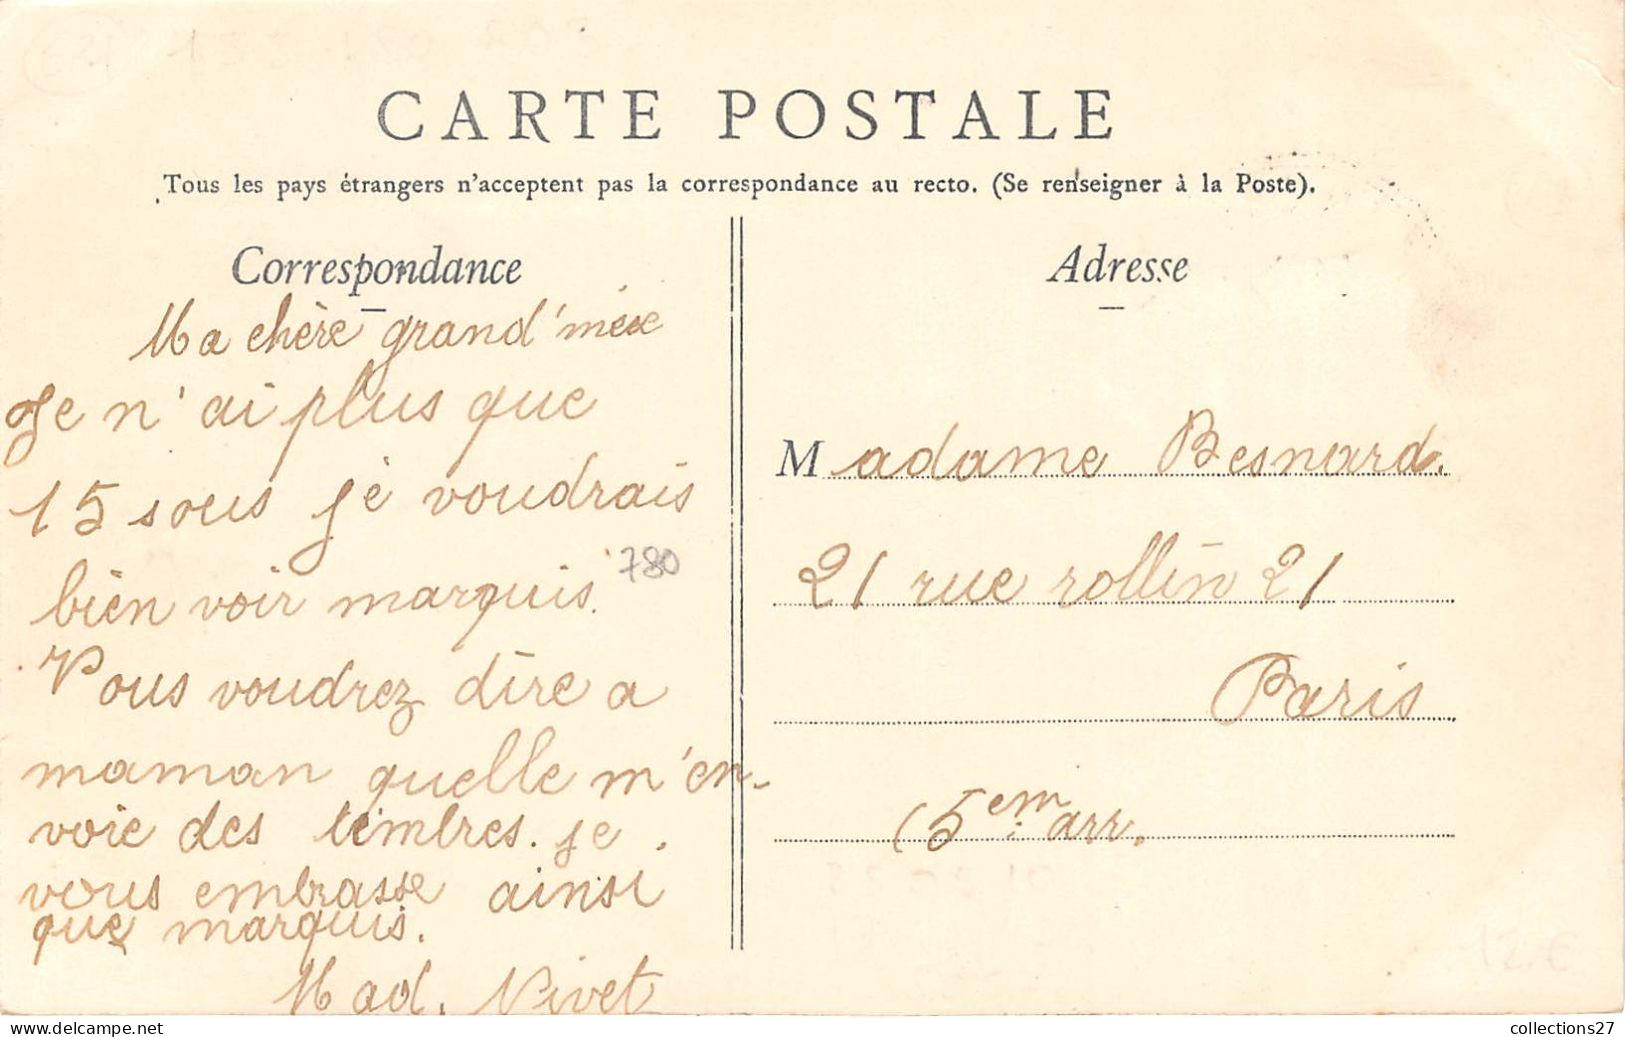 CARTE POSTALE
Tous les pays étrangers n'acceptent pas la correspondance au recto. (Se renseigner à la Poste).
Correspondance
Ma chère grand'mère
Je n'ai plus que
15 sous je voudrais
bien voir marquis.
780
Vous voudrez dire a
maman quelle m'en-
voie des timbres. je
vous embrasse ainsi
que marquis.
Mad. Nivet
Adresse
Madame Besnard.
21 rue rollin 21
Paris
(5em arr.
12 €
collections27